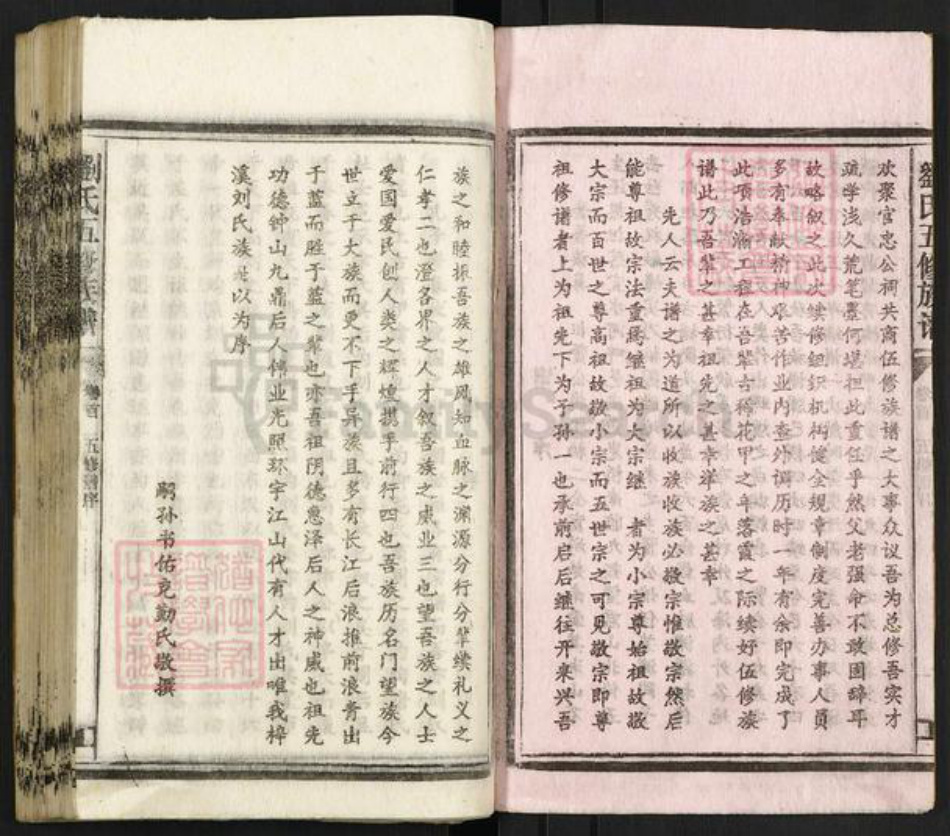 劉氏五修族谱
欢聚官忠公祠共商伍修族谱之大事众议吾为总修吾实才
疏学浅久荒笔墨何堪担此重任乎然父老强命不敢固辞耳
故略叙之此次续修组织机构健全规章制度完善办事人员
多有奉献精神艰苦作业内查外调历时一年有余即完成了
此项浩瀚工程在吾辈古稀花甲之年落霞之际续好伍修族
谱此乃吾辈之甚幸祖先之甚幸举族之甚幸
先人云夫谱之为道所以收族收族必敬宗惟敬宗然后
能尊祖故宗法重焉继祖为大宗继 者为小宗尊始祖故敬
大宗而百世之尊高祖故敬小宗而五世宗之可见敬宗即尊
祖修谱者上为祖先下为子孙一也承前启后继往开来兴吾
族之和睦振吾族之雄风知血脉之渊源分行分辈续礼义之
仁孝二也澄各界之人才叙吾族之盛业三也望吾族之人士
爱国爱民创人类之辉煌携手前行四也吾族历名门望族今
世立于大族而更不下手异族且多有长江后浪推前浪青出
于蓝而胜于蓝之辈也亦吾祖阴德惠泽后人之神威也祖先
功德钟山九鼎后人伟业光照环宇江山代有人才出唯我梓
溪刘氏族是以为序
嗣孙书佑克勤氏敬撰
劉氏五修族譜
卷首
五修谱序
FamilySearch